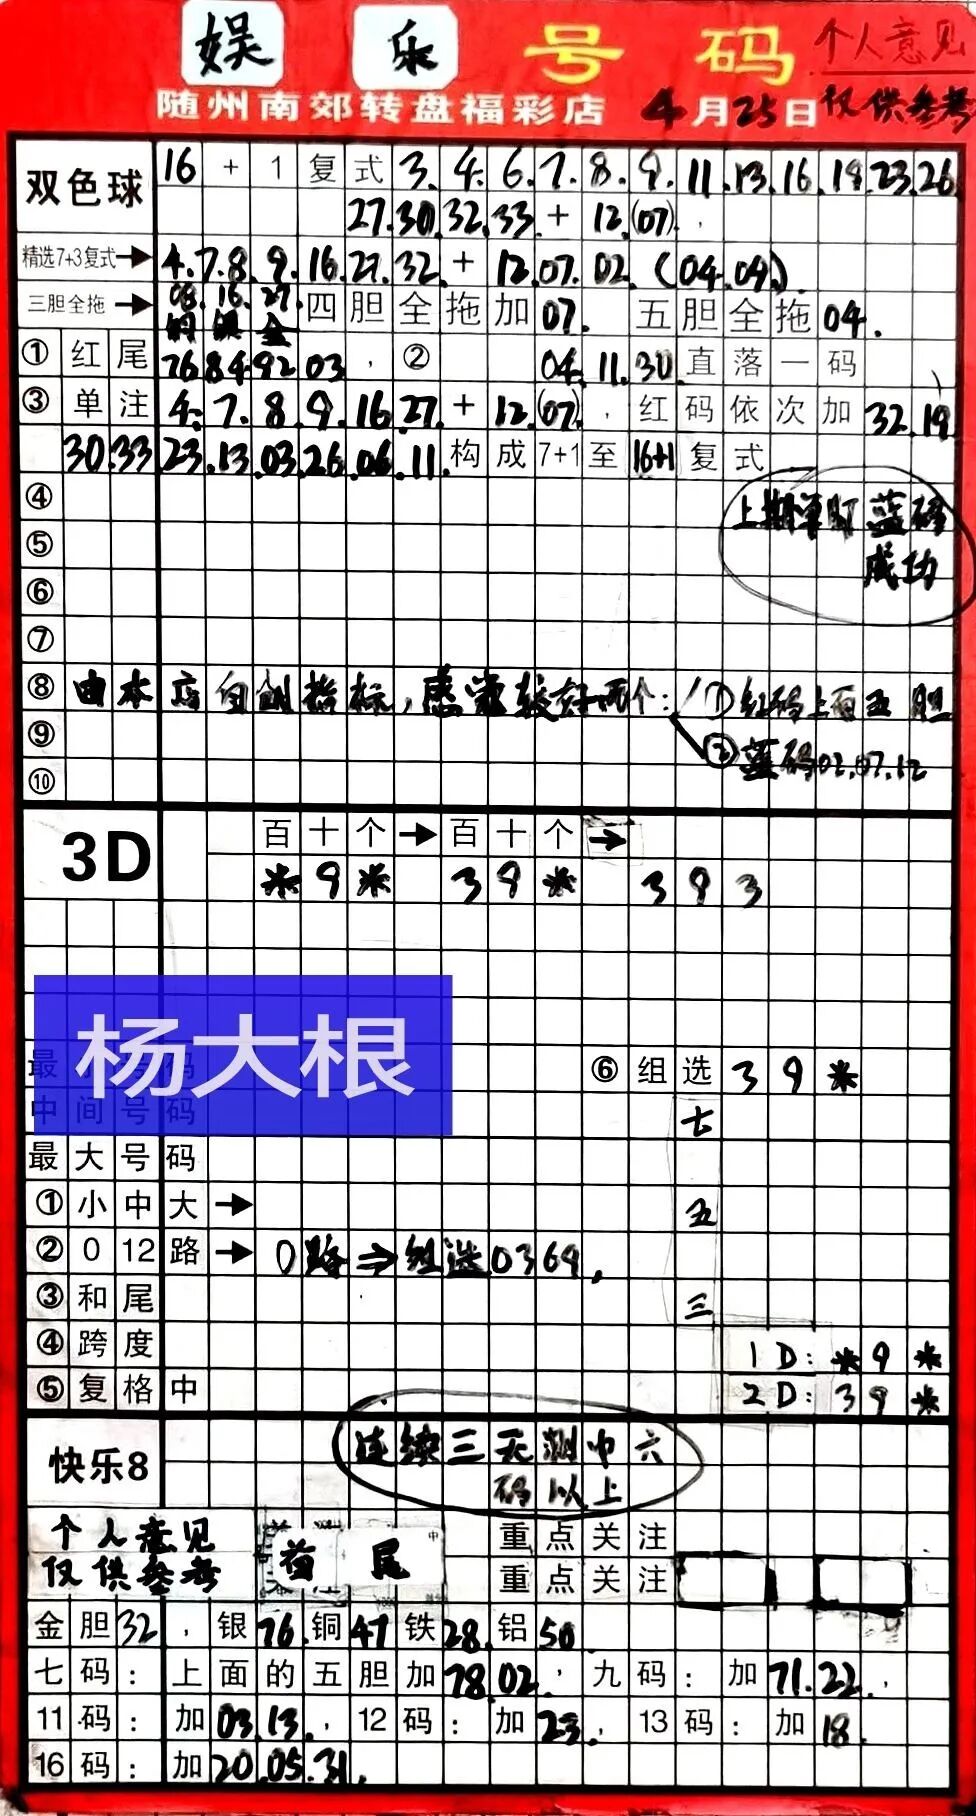 娱乐号码 个人意见
随州南郊转盘福彩店 4月25日 仅供参考
双色球 16+1复式 3.4.6.7.8.9.11.13.16.19.23.26
27.30.32.33+12.(07).
精选7+3复式→ 4.7.8.9.16.27.32+12.07.02.(04.09).
三胆全拖→ 08.16.27. 四胆全拖加07. 五胆全拖04.
银 金
①红尾 76 84 92 03, ② 04.11.30.直落一码
③单注 4.7.8.9.16.27.+12.(07),红码依次加32.19
30.33 23.13.03.26.06.11.构成7+1至16+1复式
④ 上期单盯蓝码
⑤ 成功
⑥
⑦
⑧ 由本店自创指标,感觉较好两个: ①红码上面五胆
⑨ ②蓝码02.07.12
⑩
3D 百十个→百十个→
*9* 39* 393
杨大根
最 码 ⑥组选 39*
中间号码 七
最大号码
①小中大→ 五
②012路→ 0路⇒组选0369.
③和尾 三
④跨度 1D: *9*
⑤复格中 2D: 39*
快乐8 连续三天测中六
码以上
个人意见 重点关注
仅供参考 首尾 重点关注
金胆32,银76.铜47铁28.铝50
七码:上面的五胆加78.02,九码:加71.22,
11码:加03.13,12码:加23,13码:加18.
16码:加20.05.31.